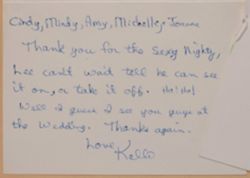 Cindy, Mindy, Amy, Michelle, Joanne
Thank you for the Sexy Nighty,
Lee can't wait tell he can see
it on, or take it off. Ho! Ho!
Well I guess I see you guys at
the Wedding. Thanks again.
Love
Kelli